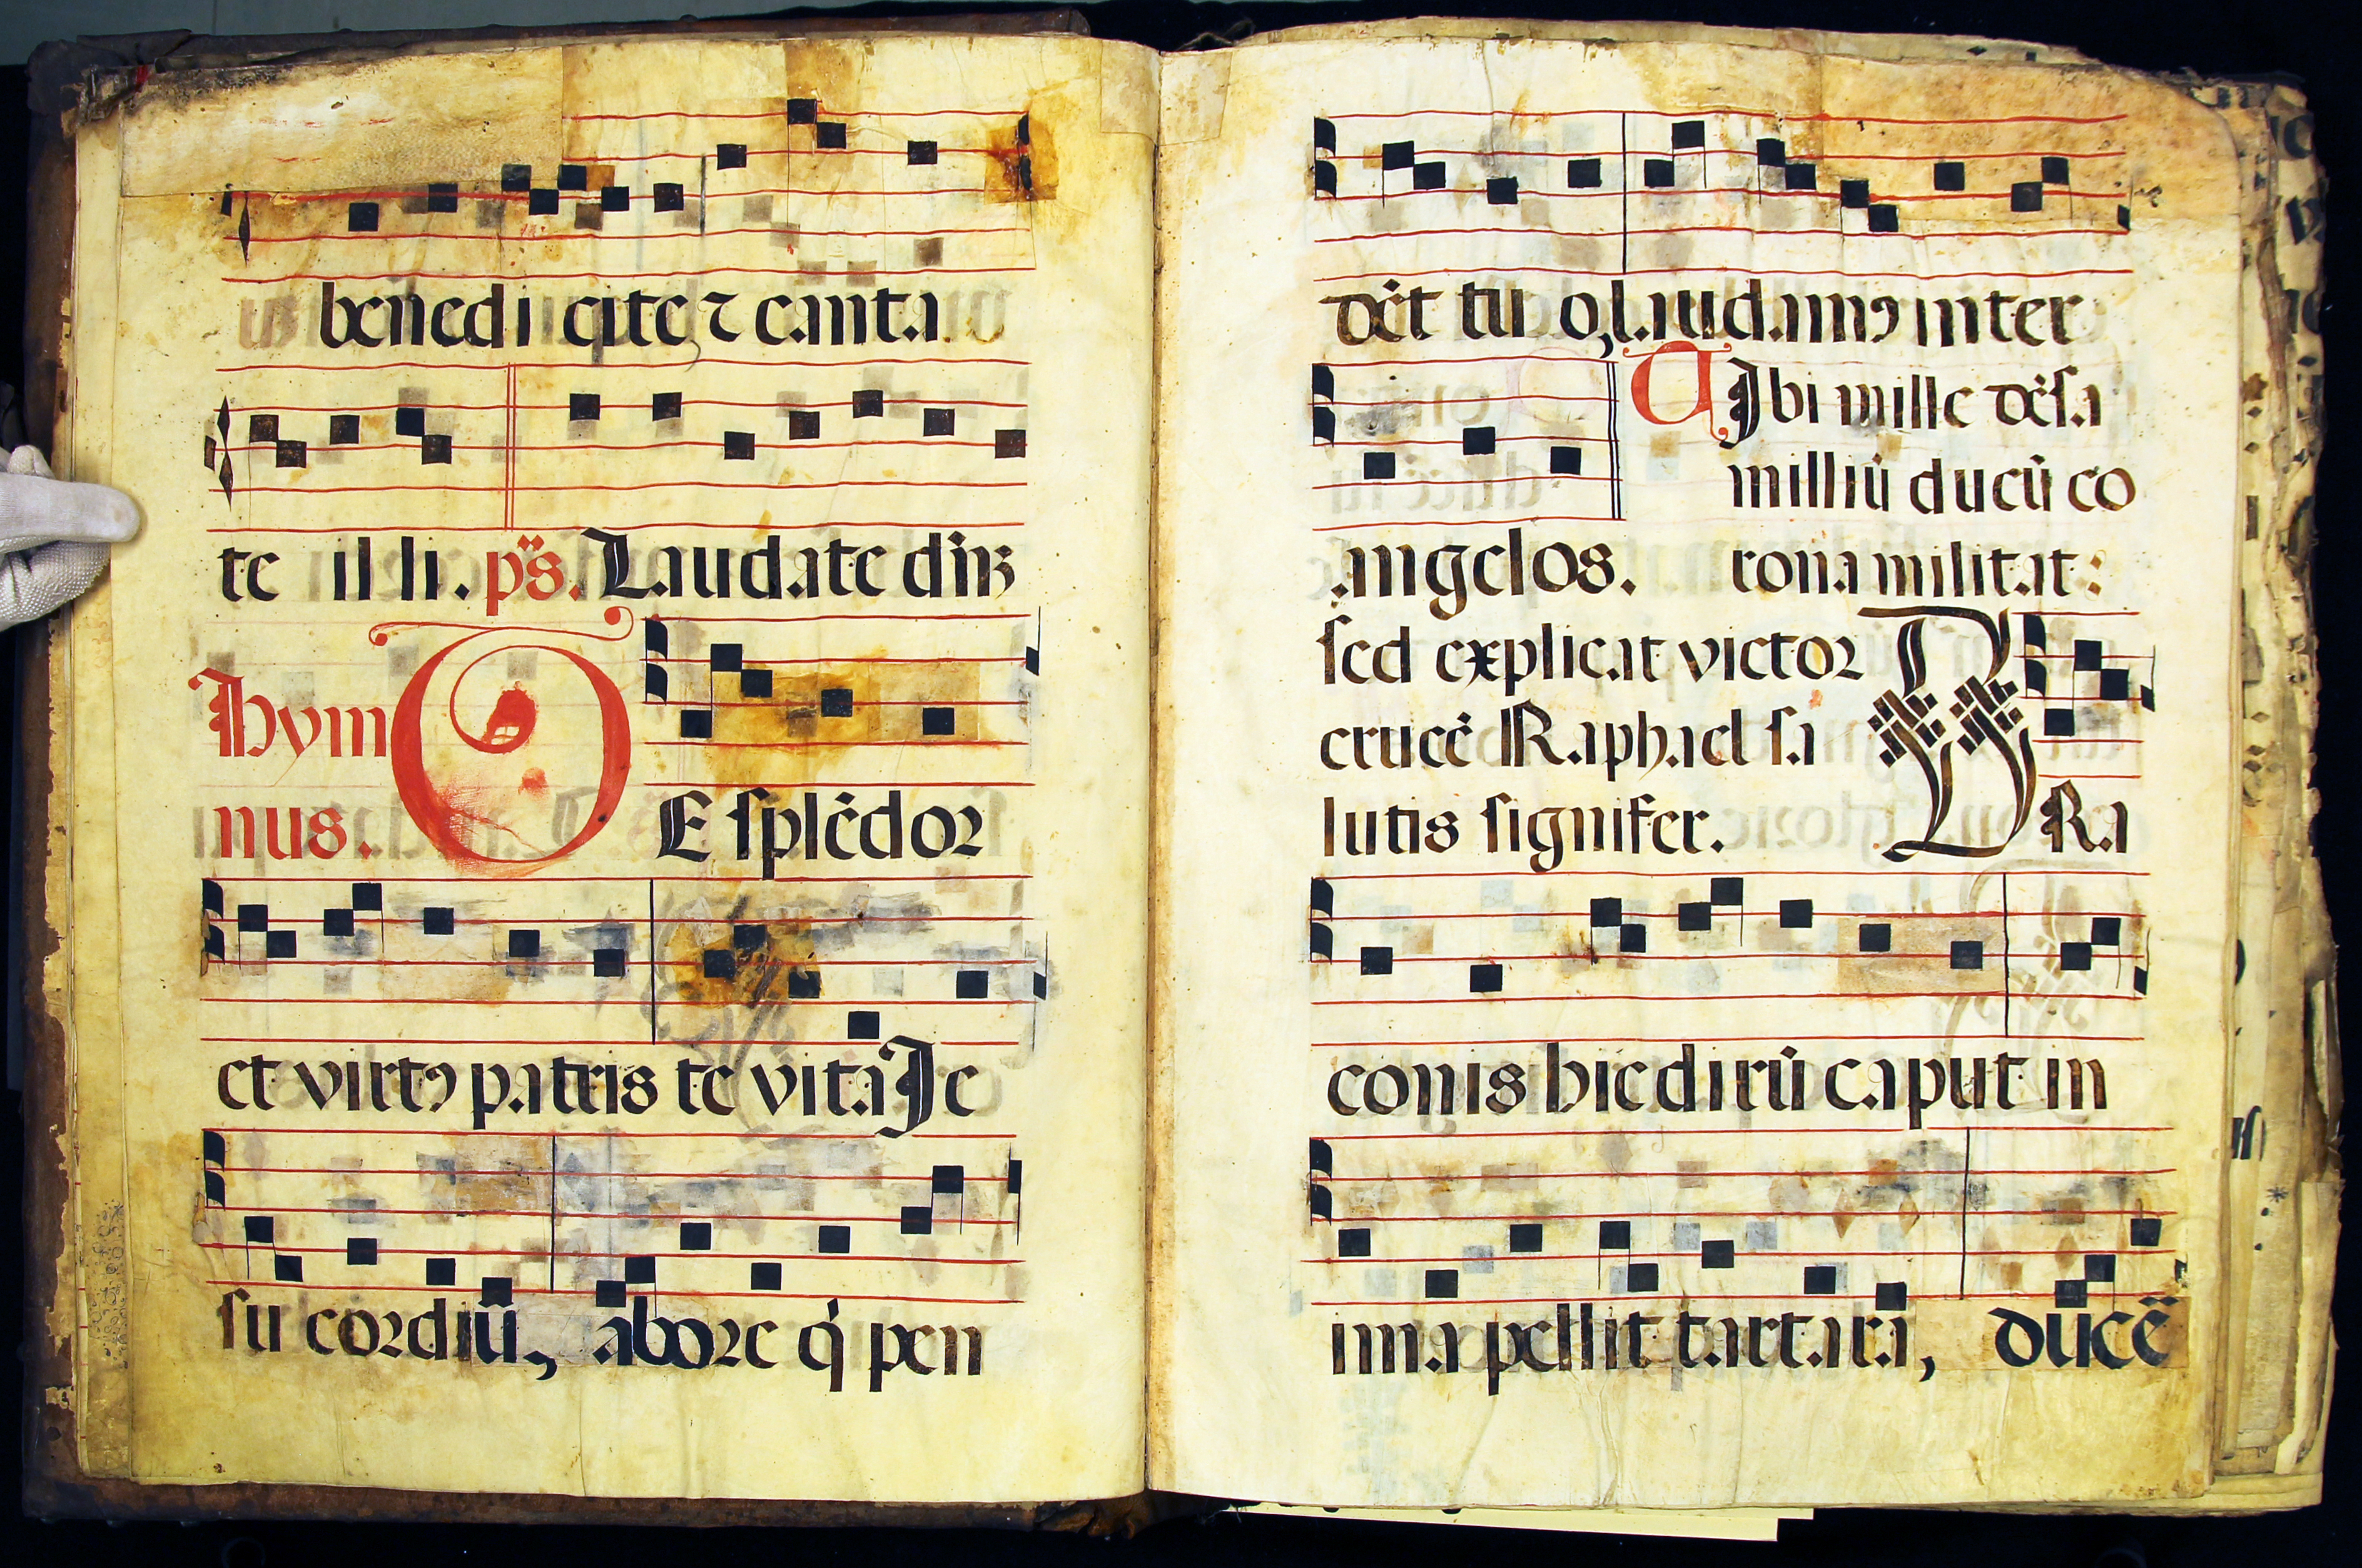 benedi cite, ⁊ canta
te illi. ps̈. Laudate dn̄z
Hym
nus.
TE splēdor
et virtꝰ patris te vita Je
su cordiū, abore q̇ pen
dēt tu o, laudamꝰ inter
angelos.
Tibi mille dēsa
milliū ducū co
rona militat:
sed explicat victor
crucē Raphael sa
lutis signifer.
DRa
conis hic dirū caput in
ima pellit tartara, ducē